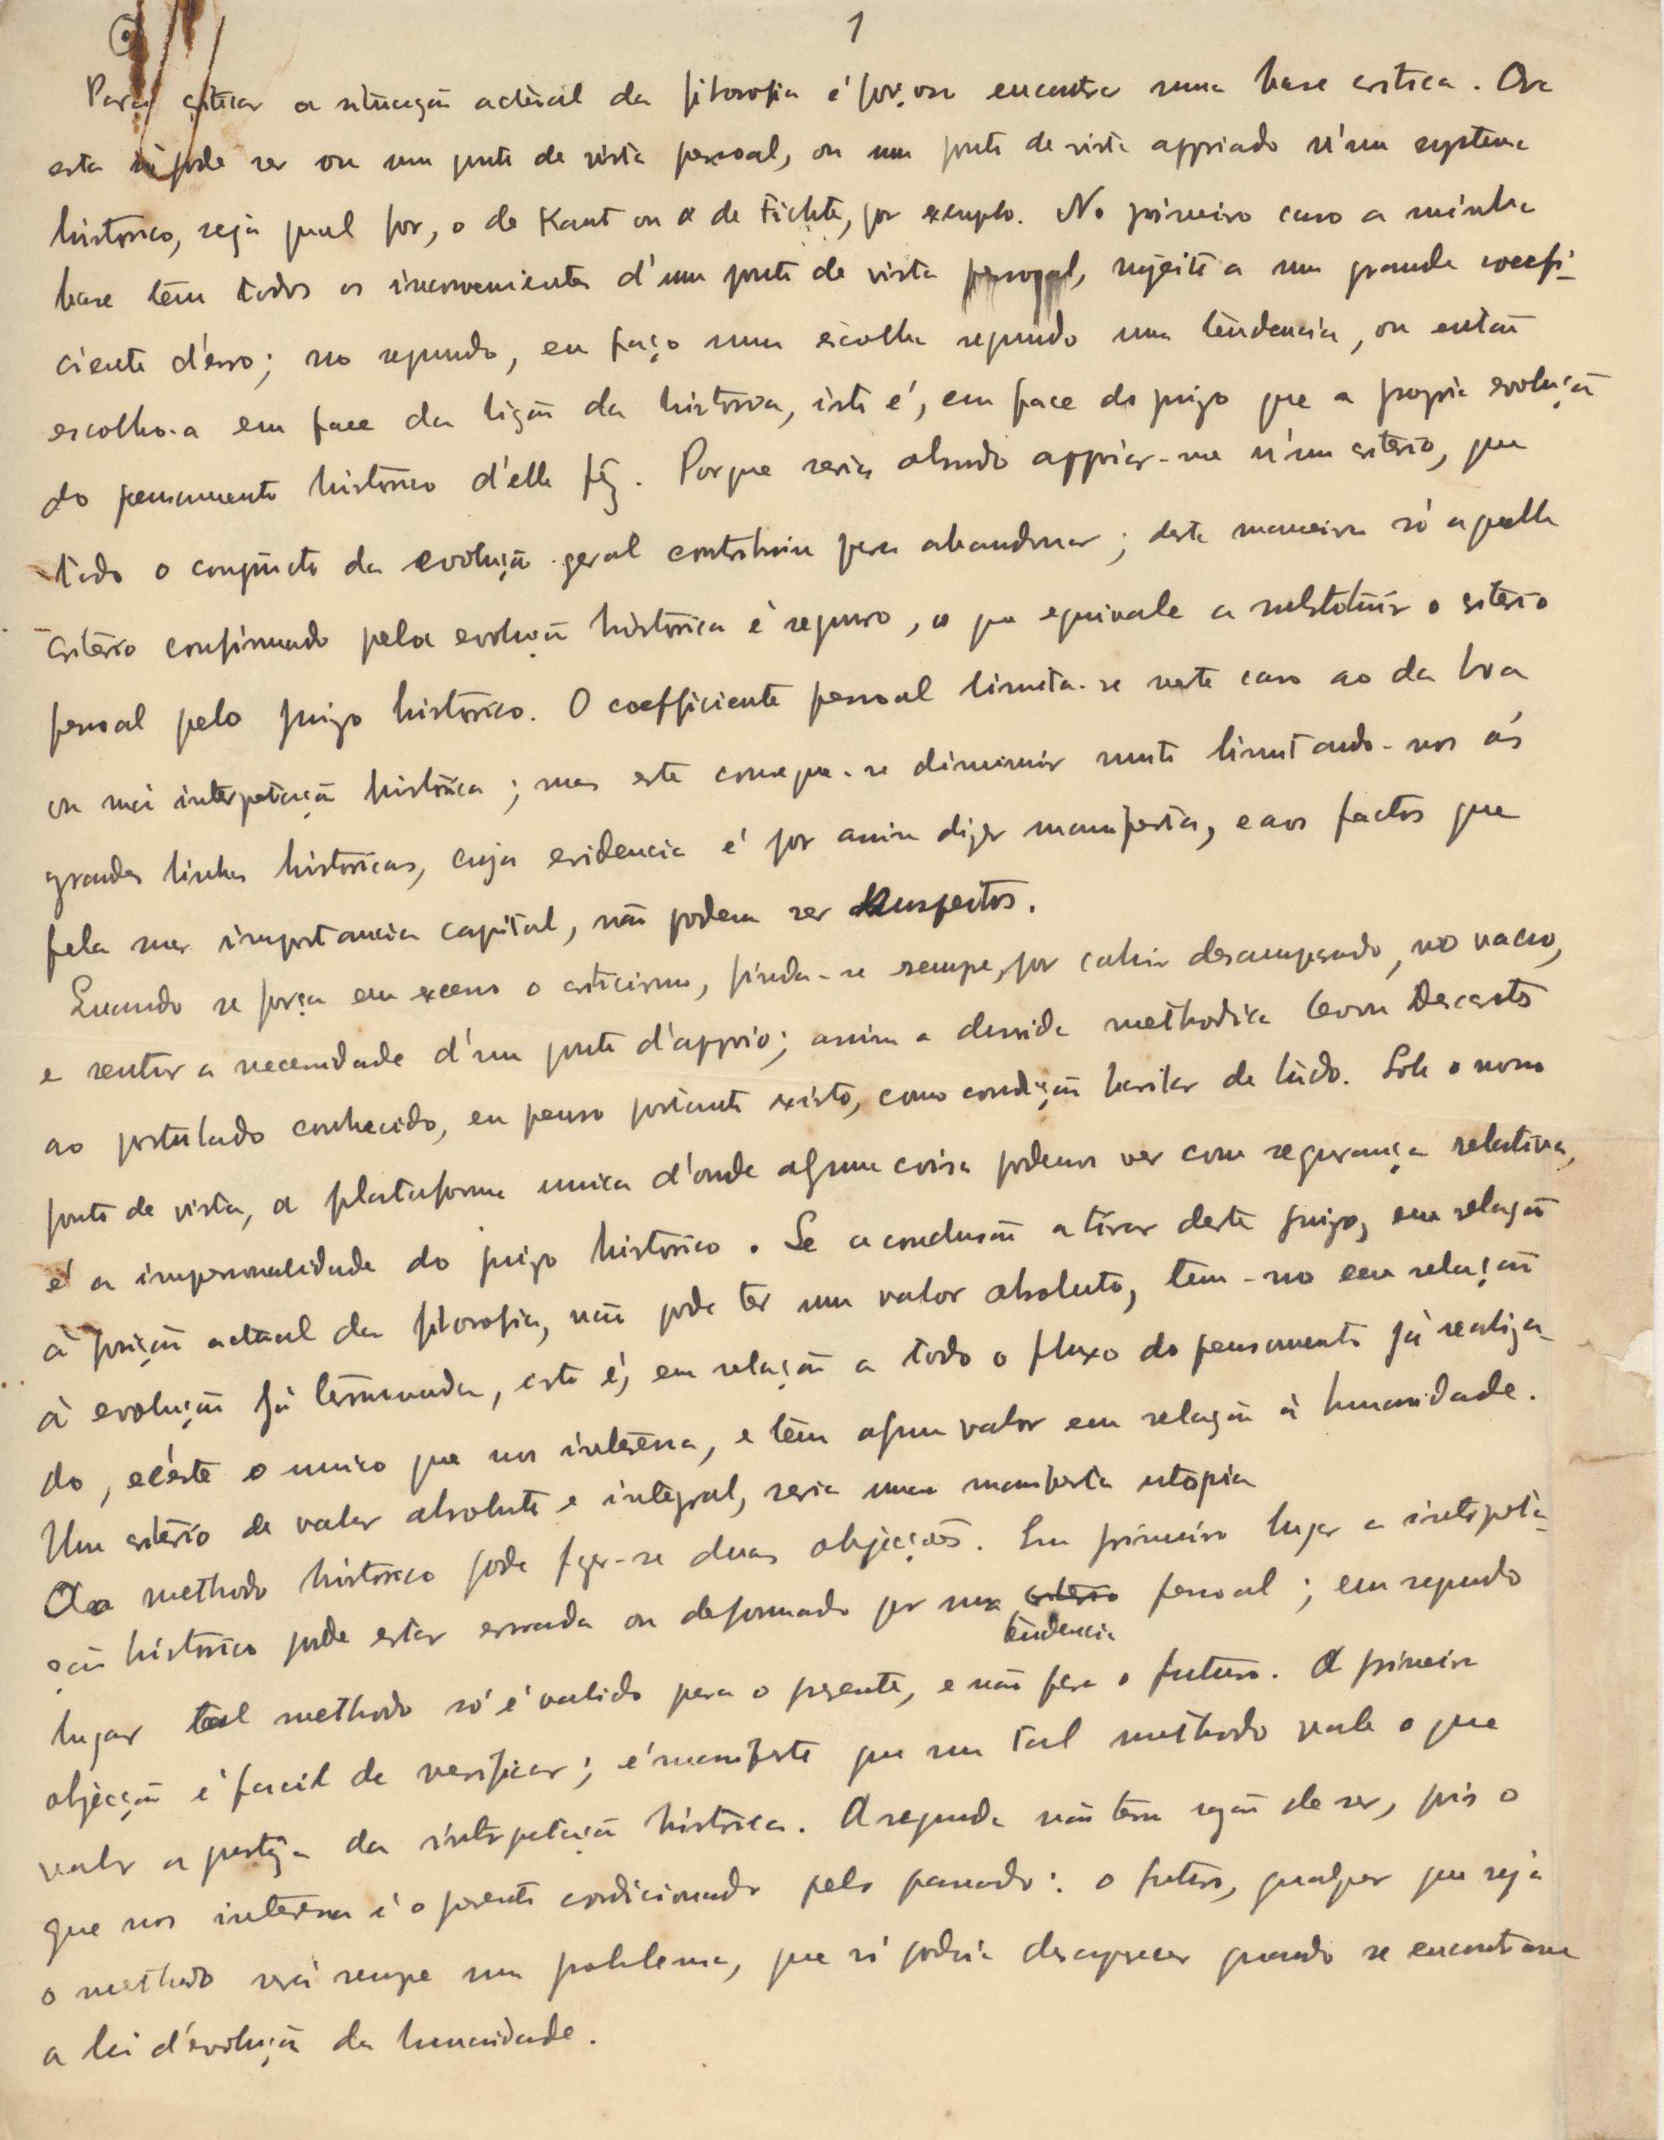 1
Para criticar a situação actual da filosofia é forçoso encontrar uma base critica. Ora
esta só pode ser ou um ponto de vista pessoal, ou um ponto de vista appoiado n'um systema
historico, seja qual for, o de Kant ou o de Fichte, por exemplo. No primeiro caso a minha
base têm todos os inconvenientes d'um ponto de vista pessoal, sujeito a um grande coeffi-
ciente d'erro; no segundo, eu faço uma escolha segundo uma tendencia, ou então
escolho-a em face da lição da historia, isto é, em face do juizo que a propria evolução
do pensamento historico d'elle fêz. Porque seria absurdo appoiar-me n'um criterio, que
todo o conjuncto da evolução geral contribuiu para abandonar; desta maneira só aquelle
criterio confirmado pela evolução historica é seguro, o que equivale a substituir o criterio
pessoal pelo juizo historico. O coefficiente pessoal limita-se neste caso ao da boa
ou má interpetação historica; mas este consegue-se diminuir muito limitando-nos ás
grandes linhas historicas, cuja evidencia é por assim dizer manifesta, e aos factos que
pela sua importancia capital, não podem ser suspeitos.
Quando se força em excesso o criticismo, finda-se sempre, por cahir desamparado, no vacuo,
e sentir a necessidade d'um ponto d'appoio; assim a duvida methodica levou Descartes
ao postulado conhecido, eu penso portanto existo, como condição basilar de tudo. Sob o nosso
ponto de vista, a plataforma unica d'onde alguma coisa podemos ver com segurança relativa,
é a impersonalidade do juizo historico. Se a conclusão a tirar deste juizo, em relação
á posição actual da filosofia, não pode ter um valor absoluto, tem-no em relação
á evolução já terminada, isto é, em relação a todo o fluxo do pensamento já realiza-
do, e é este o unico que nos interessa, e têm algum valor em relação á humanidade.
Um criterio de valor absoluto e integral, seria uma manifesta utopia
Ao methodo historico pode fazer-se duas objecções. Em primeiro lugar a interpeta-
ção historica pode estar errada ou deformada por uma criterio pessoal; em segundo
tendencia
lugar tal methodo só é valido para o presente, e não para o futuro. A primeira
objecção é facil de verificar; é manifesto que um tal methodo vale o que
valer a justeza da interpetação historica. A segunda não têm razão de ser, pois o
que nos interessa é o presente condicionado pelo passado: o futuro, qualquer que seja
o methodo será sempre um problema, que só podia desapparecer quando se encontrasse
a lei d'evolução da humanidade.